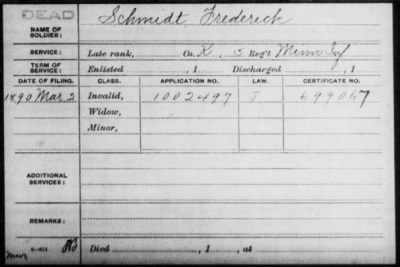 DEAD
NAME OF SOLDIER: Schmidt Frederick
SERVICE: Late rank, Co. K, 5 Reg't Minn Inf
TERM OF SERVICE: Enlisted , 1 Discharged , 1
DATE OF FILING. CLASS. APPLICATION NO. LAW. CERTIFICATE NO.
1890 Mar. 2 Invalid, 1002497 J 699067
Widow,
Minor,
ADDITIONAL SERVICES:
REMARKS:
Died , 1 , at